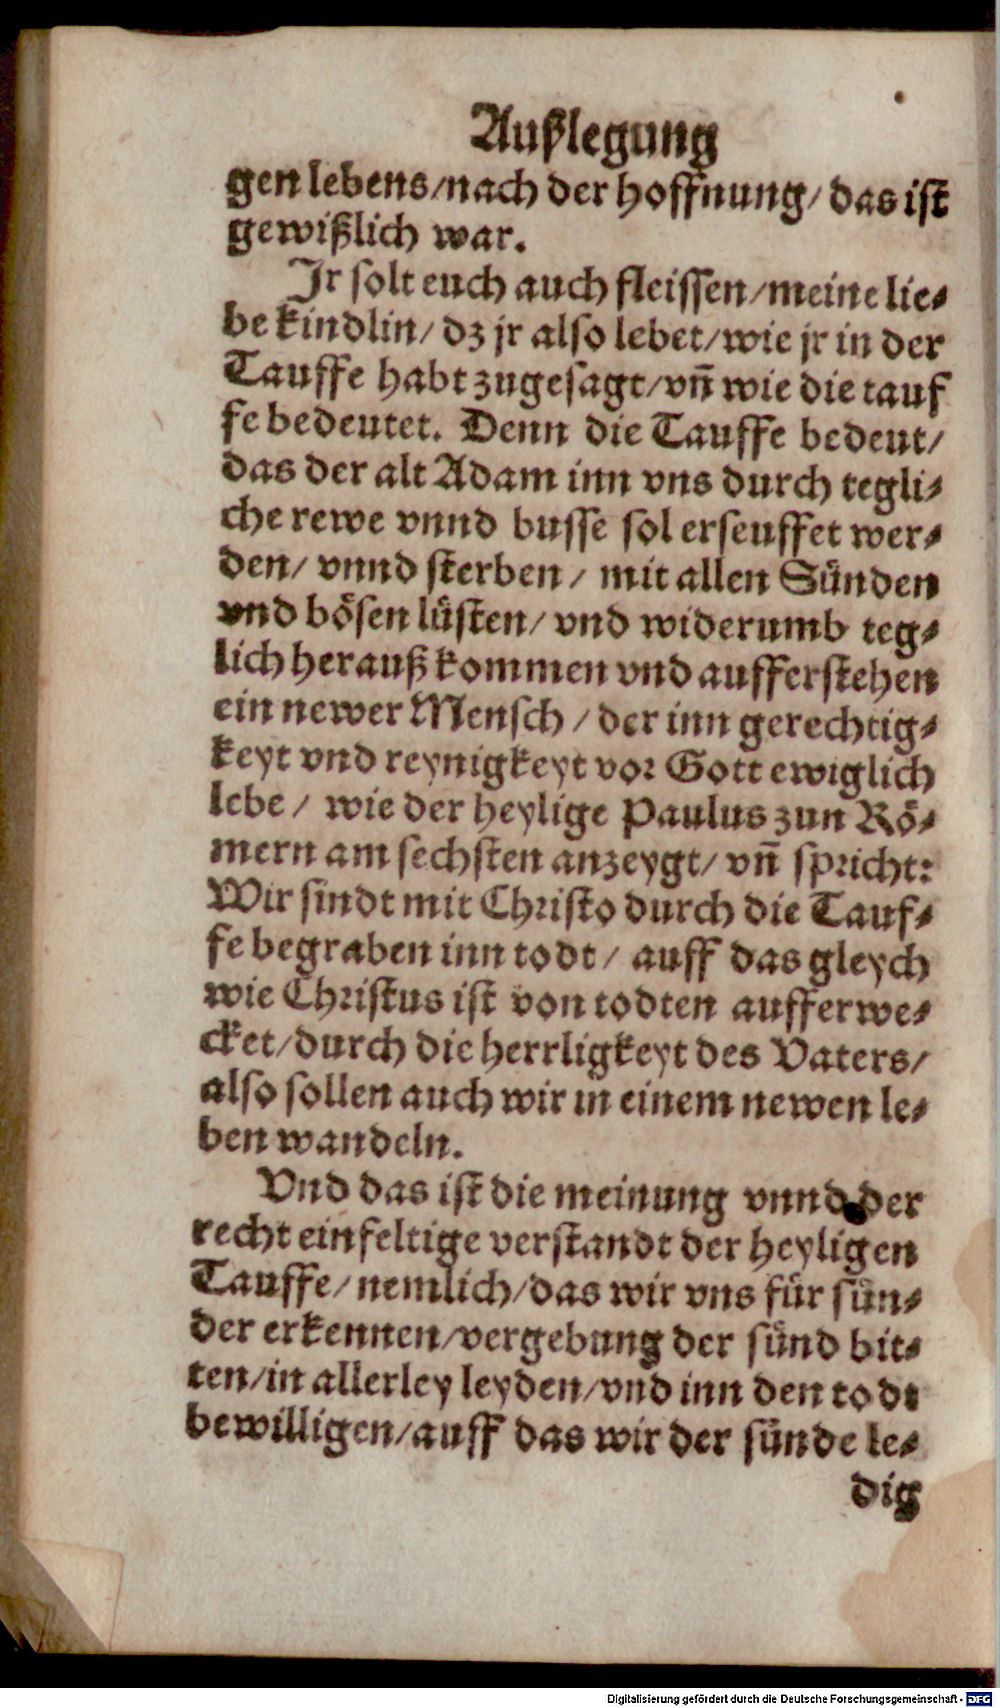 Außlegung
gen lebens/nach der hoffnung/ das ist
gewißlich war.
Jr solt euch auch fleissen/meine lie-
be kindlin/ dz jr also lebet/wie jr in der
Tauffe habt zugesagt/vñ wie die tauf
fe bedeutet. Denn die Tauffe bedeut/
das der alt Adam inn vns durch tegli-
che rewe vnnd busse sol erseuffet wer-
den/ vnnd sterben/ mit allen Sünden
vnd bösen lüsten/ vnd widerumb teg-
lich herauß kommen vnd aufferstehen
ein newer Mensch/ der inn gerechtig-
keyt vnd reynigkeyt vor Gott ewiglich
lebe/ wie der heylige Paulus zun Rö-
mern am sechsten anzeygt/ vñ spricht:
Wir sindt mit Christo durch die Tauf-
fe begraben inn todt/ auff das gleych
wie Christus ist von todten aufferwe-
cket/durch die herrligkeyt des Vaters/
also sollen auch wir in einem newen le-
ben wandeln.
Vnd das ist die meinung vnnd der
recht einfeltige verstandt der heyligen
Tauffe/ nemlich/das wir vns für sün-
der erkennen/vergebung der sünd bit-
ten/in allerley leyden/vnd inn den todt
bewilligen/auff das wir der sünde le-
dig
Digitalisierung gefördert durch die Deutsche Forschungsgemeinschaft - DFG